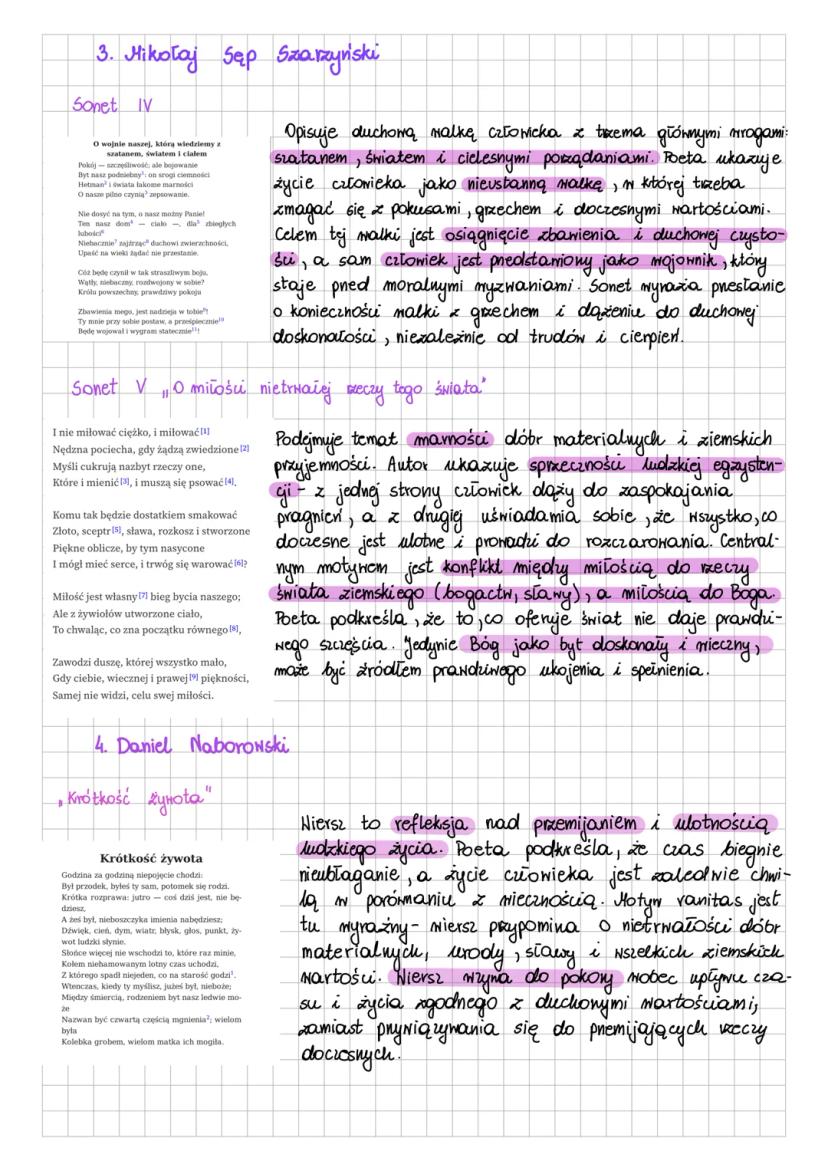 3. Mikołaj Sęp Szarzyński
Sonet IV
O wojnie naszej, którą wiedziemy z
szatanem, światem i ciałem
Pokój — szczęśliwość; ale bojowanie
Byt nasz podniebny1: on srogi ciemności
Hetman2 i świata łakome marności
O nasze pilno czynią3 zepsowanie.
Nie dosyć na tym, o nasz możny Panie!
Ten nasz dom4 — ciało —, dla5 zbiegłych
lubości6
Niebacznie7 zajźrząc8 duchowi zwierzchności,
Upaść na wieki żądać nie przestanie.
Cóż będę czynił w tak straszliwym boju,
Wątły, niebaczny, rozdwojony w sobie?
Królu powszechny, prawdziwy pokoju
Zbawienia mego, jest nadzieja w tobie9!
Ty mnie przy sobie postaw, a przezpiecznie10
Będę wojował i wygram statecznie11!
Opisuje duchową walkę człowieka z trzema głównymi wrogami:
szatanem, światem i cielesnymi pożądaniami. Poeta ukazuje
życie człowieka jako nieustanną walkę, w której trzeba
zmagać się z pokusami, grzechem i doczesnymi wartościami.
Celem tej walki jest osiągnięcie zbawienia i duchowej czysto-
ści, a sam człowiek jest przedstawiony jako wojownik, który
staje przed moralnymi wyzwaniami. Sonet wyraża przesłanie
o konieczności walki z grzechem i dążeniu do duchowej
doskonałości, niezależnie od trudów i cierpień.
Sonet V „O miłości nietrwałej rzeczy tego świata"
I nie miłować ciężko, i miłować[1]
Nędzna pociecha, gdy żądzą zwiedzione[2]
Myśli cukrują nazbyt rzeczy one,
Które i mienić[3], i muszą się psować[4].
Komu tak będzie dostatkiem smakować
Złoto, sceptr[5], sława, rozkosz i stworzone
Piękne oblicze, by tym nasycone
I mógł mieć serce, i trwóg się warować[6]?
Miłość jest własny[7] bieg bycia naszego;
Ale z żywiołów utworzone ciało,
To chwaląc, co zna początku równego[8],
Zawodzi duszę, której wszystko mało,
Gdy ciebie, wiecznej i prawej[9] piękności,
Samej nie widzi, celu swej miłości.
Podejmuje temat marności dóbr materialnych i ziemskich
przyjemności. Autor ukazuje sprzeczności ludzkiej egzysten-
cji - z jednej strony człowiek dąży do zaspokajania
pragnień, a z drugiej uświadamia sobie, że wszystko, co
doczesne jest ulotne i prowadzi do rozczarowania. Central-
nym motywem jest konflikt między miłością do rzeczy
świata ziemskiego (bogactw, sławy), a miłością do Boga.
Poeta podkreśla, że to, co oferuje świat nie daje prawdzi-
wego szczęścia. Jedynie Bóg jako byt doskonały i wieczny,
może być źródłem prawdziwego ukojenia i spełnienia.
4. Daniel Naborowski
„Krótkość żywota"
Krótkość żywota
Godzina za godziną niepojęcie chodzi:
Był przodek, byłeś ty sam, potomek się rodzi.
Krótka rozprawa: jutro — coś dziś jest, nie bę-
dziesz,
A żeś był, nieboszczyka imienia nabędziesz;
Dźwięk, cień, dym, wiatr, błysk, głos, punkt, ży-
wot ludzki słynie.
Słońce więcej nie wschodzi to, które raz minie,
Kołem niehamowanym lotny czas uchodzi,
Z którego spadł niejeden, co na starość godzi1.
Wtenczas, kiedy ty myślisz, jużeś był, nieboże;
Między śmiercią, rodzeniem byt nasz ledwie mo-
że
Nazwan być czwartą częścią mgnienia2; wielom
była
Kolebka grobem, wielom matka ich mogiła.
Wiersz to refleksja nad przemijaniem i ulotnością
ludzkiego życia. Poeta podkreśla, że czas biegnie
nieubłaganie, a życie człowieka jest zaledwie chwi-
lą w porównaniu z wiecznością. Motyw vanitas jest
tu wyraźny- wiersz przypomina o nietrwałości dóbr
materialnych, urody, sławy i wszelkich ziemskich
wartości. Wiersz wzywa do pokory wobec upływu cza-
su i życia zgodnego z duchowymi wartościami,
zamiast przywiązywania się do przemijających rzeczy
doczesnych.